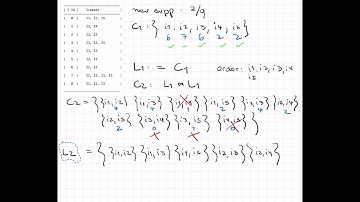 TID Itemset
I1, I2, I5
I2, I4
I2, I3
I1, I2, I4
I1, I3
I2, I3
I1, I3
I1, I2, I3, I5
I1, I2, I3
min supp : 2/9
C1 : { i1, i2, i3, i4, i5 }
6 7 6 2 2
L1 : = C1
order: i1, i2, i3, i4
i5
C2 : L1 ⋈ L1
C2 = { {i1,i2} {i1,i3} {i1,i4} {i1,i5} {i2,i3} {i2,i4}
4 4 1 2 4 2
{i2,i5} {i3,i4} {i3,i5} {i4,i5} }
2 0 1 0
L2 = { {i1,i2} {i1,i3} {i1,i5} {i2,i3} {i2,i4}